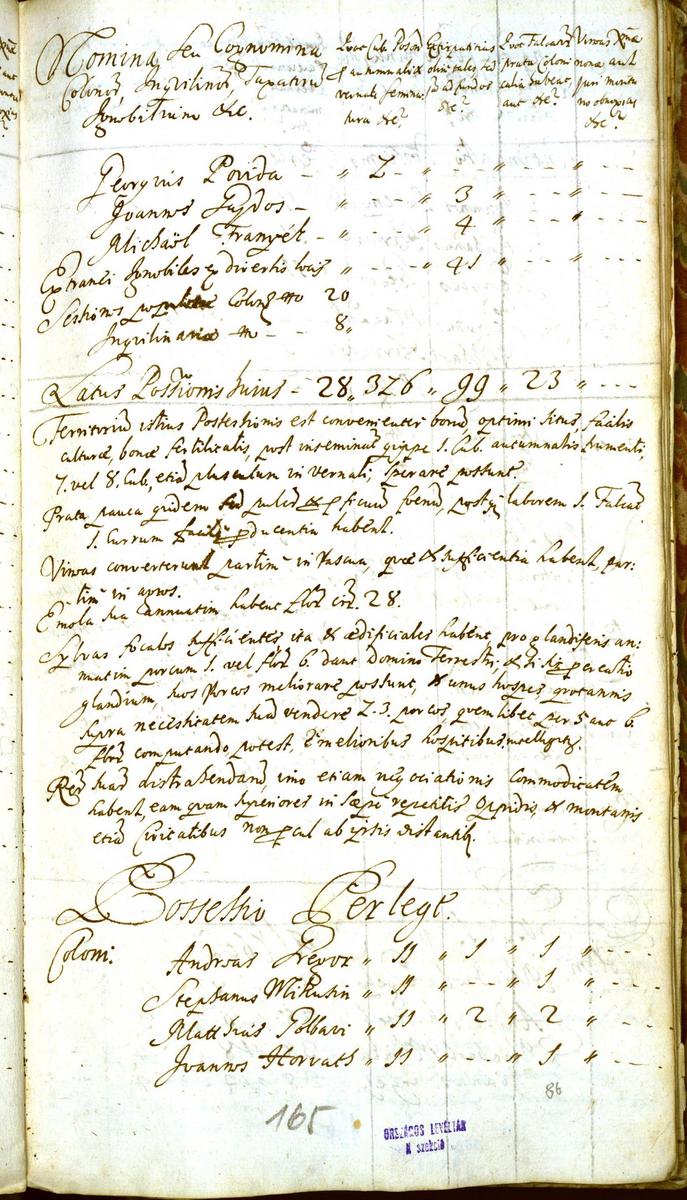 Nomina seu Cognomina
Colonor, Inqvilinor, Taxatim
Jnobilium &c.
Quot Cub. Poson
autumnalis &
vernalis semina:
tura &c?
Exstirpatitius
olim tales sed
&c?
Quot Falcator
prata Coloni
calia habeat,
aut &c?
Vineas
nonæ aut
juri montano obnoxias
&c?
Georgius Povida - „ 2 - „ - - „ - - „ - -
Joannes Gajdos - „ - - „ 3 „ - - „ - -
Michaël Franyék - „ - - „ 4 „ - - „ - -
Extranei Jnobiles ex diversis locis „ - - „ 41 „ - - „ - -
Sessiones populosæ Colon. No 20
Inqvilinariæ No - - 8„
Latus Possionis huius - 28„ 326 „ 99 „ 23 „ - - -
Territoriū istius Possessionis est convenienter bonū, optimi situs, facilis
culturæ, bonæ fertilitatis, post inseminat qippe 1. Cub. autumnalis frumenti,
7. vel 8. Cub, etiā plusculum in vernali, sperare possunt.
Prata pauca qvidem sed foenū, postq laborem 1. Falcat
1. Currum facile pducentia habent.
Vineas converterunt partim in Pascua, quæ & sufficientia habent, par:
tim in agros.
Emola sua annuatim habent flor. cir. 28.
Sylvas focales sufficientes ita & ædificiales habent, pro glandiferis an:
nuatim porcum 1. vel flor 6. dant Domino Terrestri, & si sit procreatio
glandium, suos Porcos meliorare possunt, & unus hospes qvotannis
supra necessitatem suā vendere 2-3. porcos, qvemlibet per 5 aut 6.
flor computando potest, è melioribus hospitibus intelligitur.
Rer suar distrahendar, imo etiam negociationis commoditatem
habent, eam qvam superiores in sæpe repetitis Oppidis, & montanis
etiā Civitatibus non pcul ab ipsis distantib.
Possessio Perlege.
Coloni:
Andreas Gregor „ 11 „ 1 „ 1 „ - - -
Stephanus Mikusin „ 11 „ - - „ 1 „ - - -
Matthias Polbavi „ 11 „ 2 „ 2 „ - - -
Joannes Horvath „ 11 „ - - „ 1 „ - - -
86
165
ORSZÁGOS LEVÉLTÁR
N szekció